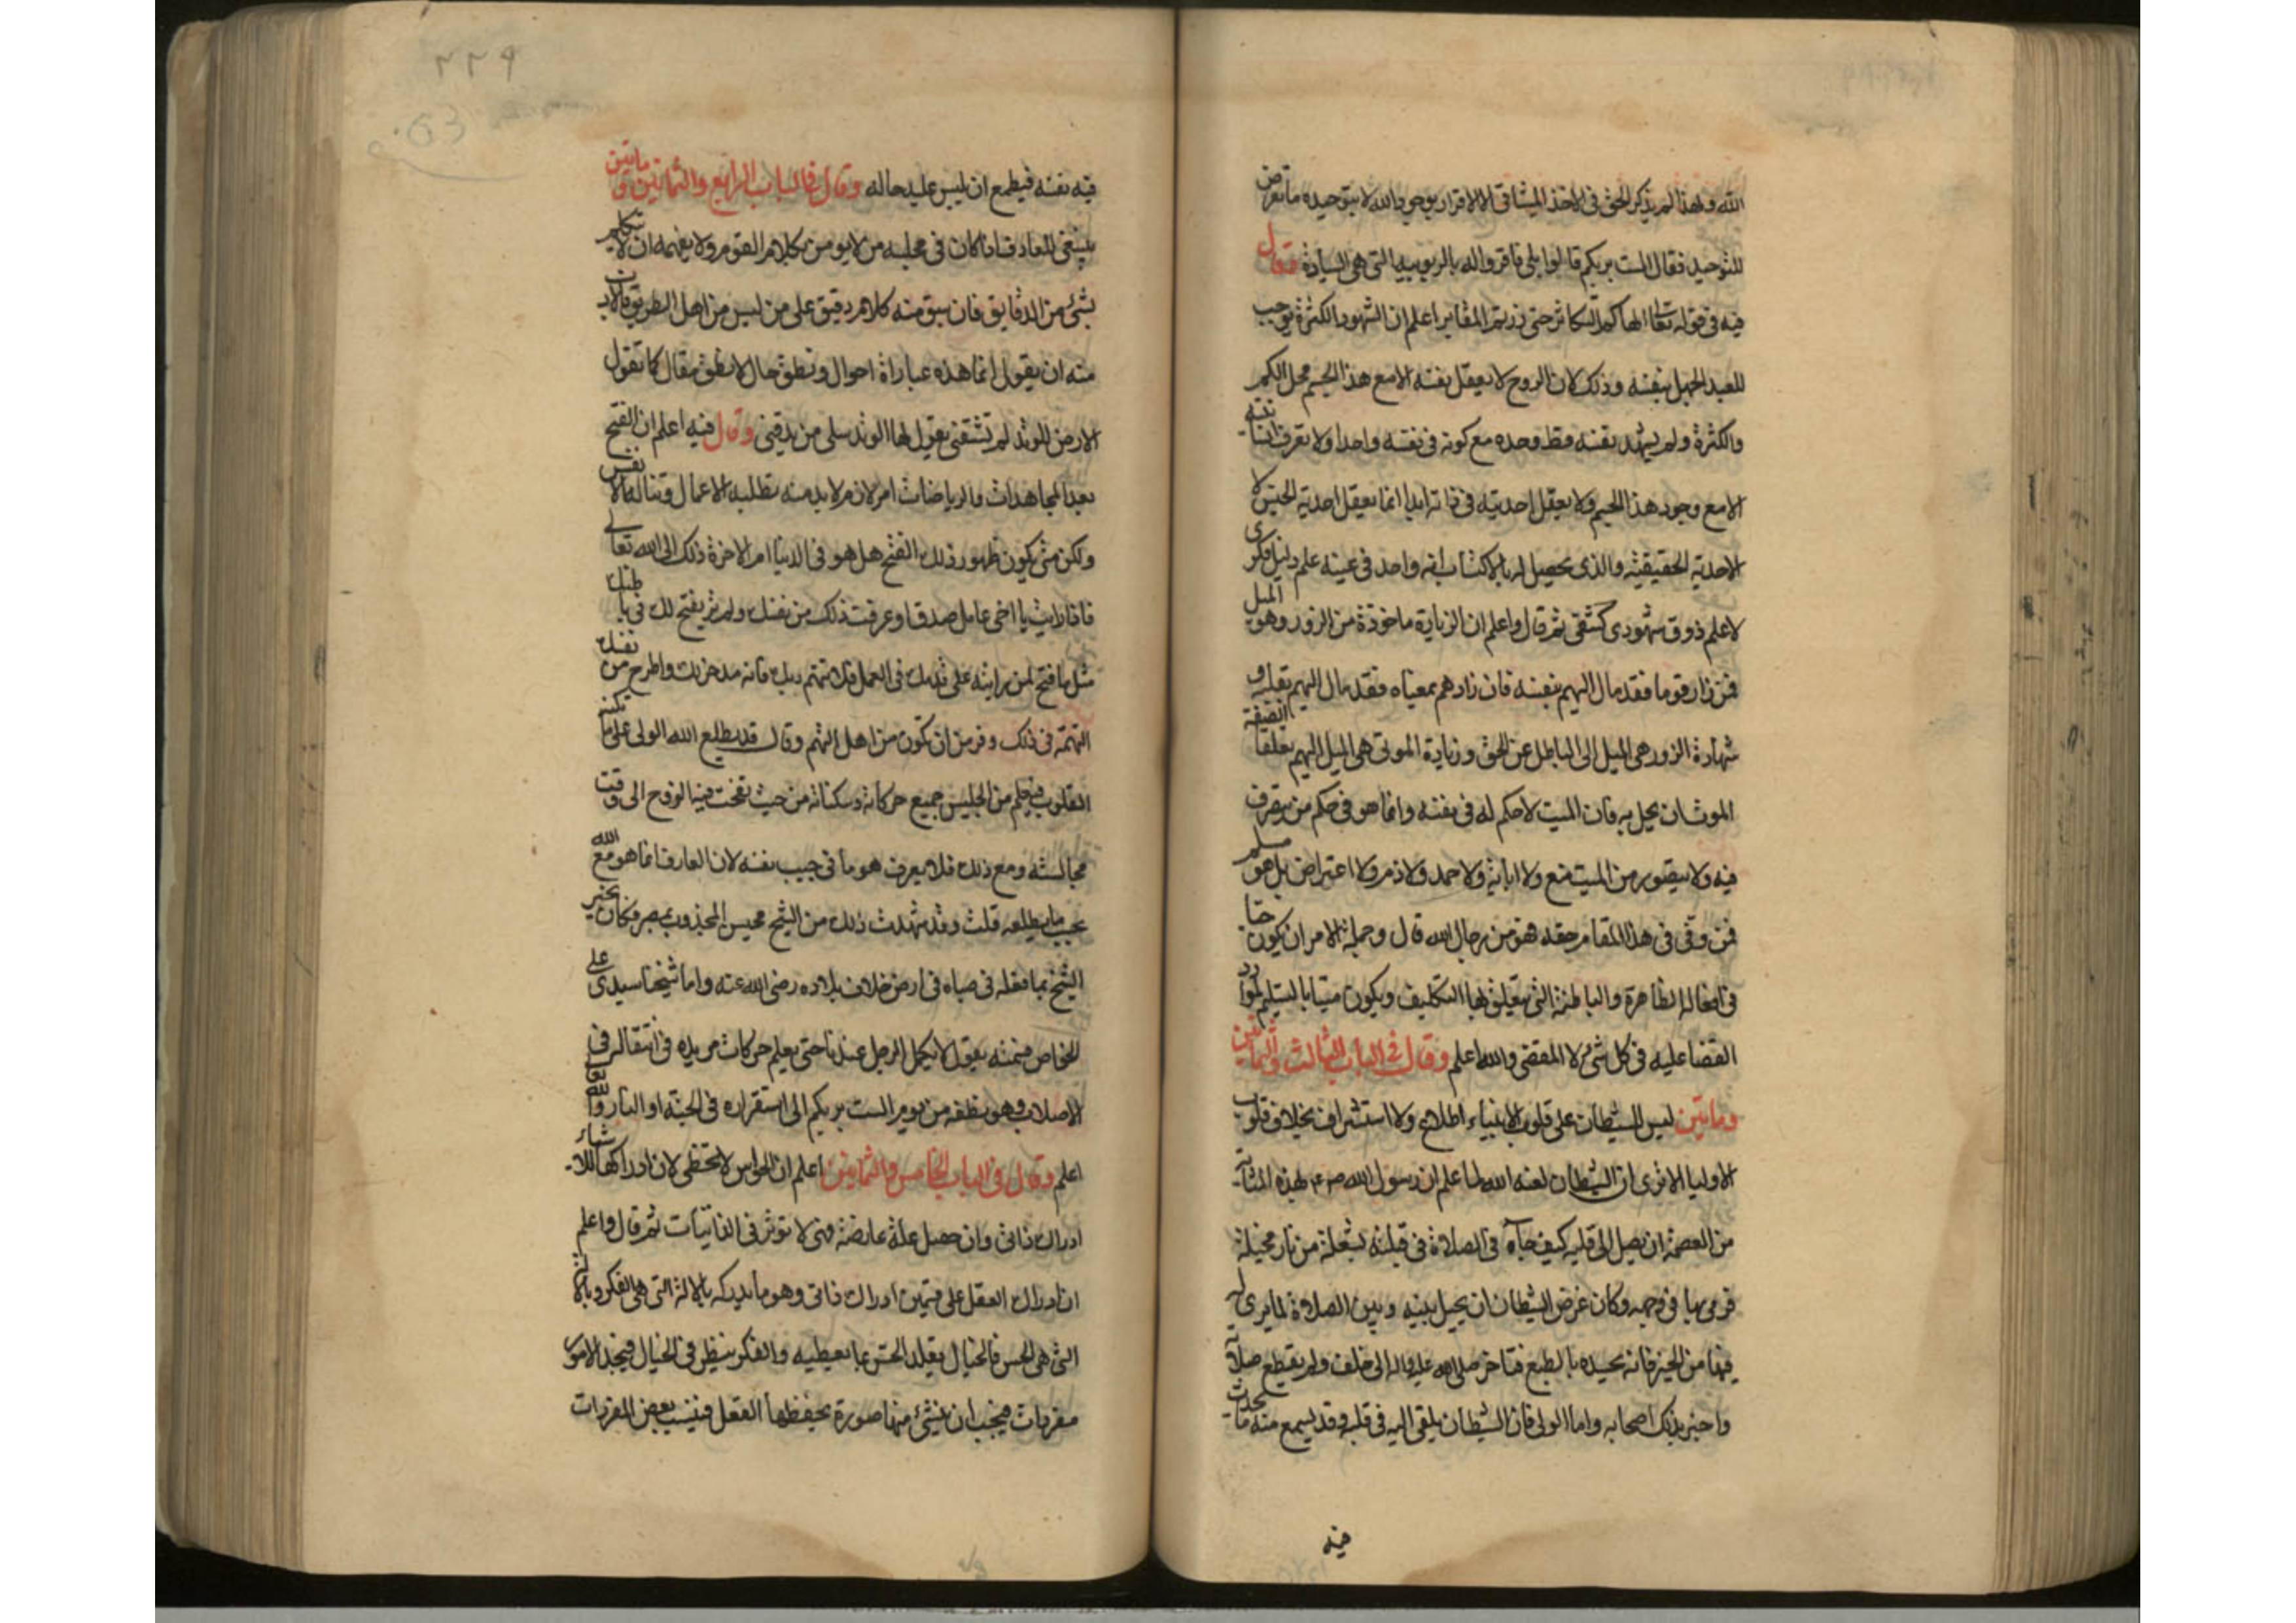 الله ولهذا لم يذكر الحق في الاخذ الميثاق الا الاقرار بوجود الله لا بتوحيده ما تعرض
للتوحيد فقال الست بربكم قالوا بلى فاقروا له بالربوبية التي هي السيادة وقال
فيه في قوله تعالى الهاكم التكاثر حتى زرتم المقابر اعلم ان الشهود الكثرة يوجب
للعبد الجهل بنفسه وذلك لان الروح لا يعقل نفسه الا مع هذا الجسم محل الكم
والكثرة ولم يشهد نفسه قط وحده مع كونه في نفسه واحدا ولا تعرف انسانيته
الا مع وجود هذا الجسم ولا يعقل احديته في ذاته ابدا انما يعقل احدية الجنس لا
الاحدية الحقيقية والذي يحصل له بالاكتساب انه واحد في عينه علم دليل فكرى
لا علم ذوق شهودي كشفي ثم قال واعلم ان الزيارة ماخوذة من الزور وهو الميل
فمن زار قوما فقد مال اليهم بنفسه فان زارهم بمعناه فقد مال اليهم بقلبه و
شهادة الزور هي الميل الى الباطل عن الحق وزيارة الموتى هي الميل اليهم تعلقا
الموت ان يحل به فان الميت لا حكم له في نفسه وانما هو في حكم من يتصرف
فيه ولا يتصور من الميت منع ولا اباية ولا حمد ولا ذم ولا اعتراض بل هو مسلم
فمن وفى في هذا المقام حقه فهو من رجال الله قال وجملة الامر ان يكون حيا
في افعاله الظاهرة والباطنة التي يتعلق بها التكليف ويكون ميتا بالتسليم لموارد
القضا عليه في كل شيء لا المقضى والله اعلم وقال في الباب الثالث والثمانين
ومايتين ليس للشيطان على قلوب الانبياء اطلاع ولا استشراف بخلاف قلوب
الاوليا الا ترى ان الشيطان لعنه الله لما علم ان رسول الله صم بهذه المثابة
من العصمة ان يصل الى قلبه كيف جاه في الصلاة في قبلته بشعلة من نار مخيلة
فرمى بها في وجهه وكان غرض الشيطان ان يحيل بينه وبين الصلاة لما يرى له
فيها من الخير فانه يحسده بالطبع فتاخر صلى الله عليه واله الى خلف ولم يقطع صلاته
واخبر بذلك اصحابه واما الولى فان الشيطان يلقى اليه في قلبه وقد يسمع منه ما يحدث
فيه
٢٢٩
فيه نفسه فيطمع ان يلبس عليه حاله وقال في الباب الرابع والثمانين و مايتين
ينبغي للعارف اذا كان في مجلسه من لا يومن بكلام القوم ولا يفهمه ان لا يتكلم
بشئ من الدقايق فان سبق منه كلام دقيق على من ليس من اهل الطريق فلا بد
منه ان يقول انما هذه عبارات احوال ونطق حال لا نطق مقال كما تقول
الارض للوتد لم تشقني يقول لها الوتد سلى من يدقني وقال فيه اعلم ان الفتح
بعد المجاهدات والرياضات امر لازم لا بد منه تطلبه الاعمال وتناله الانفس
ولكن متى يكون ظهور ذلك الفتح هل هو في الدنيا ام الاخرة ذلك الى الله تعالى
فاذا رايت يا اخي عامل صدق او عرفت ذلك من نفسك ولم تر يفتح لك في باطنك
مثل ما فتح لمن رايته على قدمك في العمل فلا تتهم ربك فانه مدخر لك واطرح من نفسك
التهمة في ذلك وفر من ان تكون من اهل التهم وقال قد يطلع الله الولى على ما تكنه
القلوب فيعلم من الجليس جميع حركاته وسكناته من حيث نفخت فيه الروح الى وقت
مجالسته ومع ذلك فلا يعرف هو ما في جيب نفسه لان العارف انما هو مع الله
بحسب ما يطلعه قلت وقد شهدت ذلك من الشيخ محيسن المجذوب بمصر فكان يخبر
الشيخ بما فعله في صباه في ارض خلاف بلاده رضى الله عنه واما شيخنا سيدى على
الخواص فسمعته يقول لا يكمل الرجل عندنا حتى يعلم حركات مريده في انتقاله في
الاصلاب وهو نطفه من يوم الست بربكم الى استقراره في الجنة او النار والله تعالى
اعلم وقال في الباب الخامس والثمانين اعلم ان الحواس لا تخطى لان ادراكها للاشياء
ادراك ذاتي وان حصل علة عارضة فهى لا توثر في الذاتيات ثم قال واعلم
ان ادراك العقل على قسمين ادراك ذاتي وهو ما يدركه بالالة التي هي الفكر وبالالة
التي هي الحس فالخيال يقلد الحس بما يعطيه والفكر ينظر في الخيال فيجد الامور
مفردات فيجب ان ينشئ منها صورة يحفظها العقل فينسب بعض المفردات